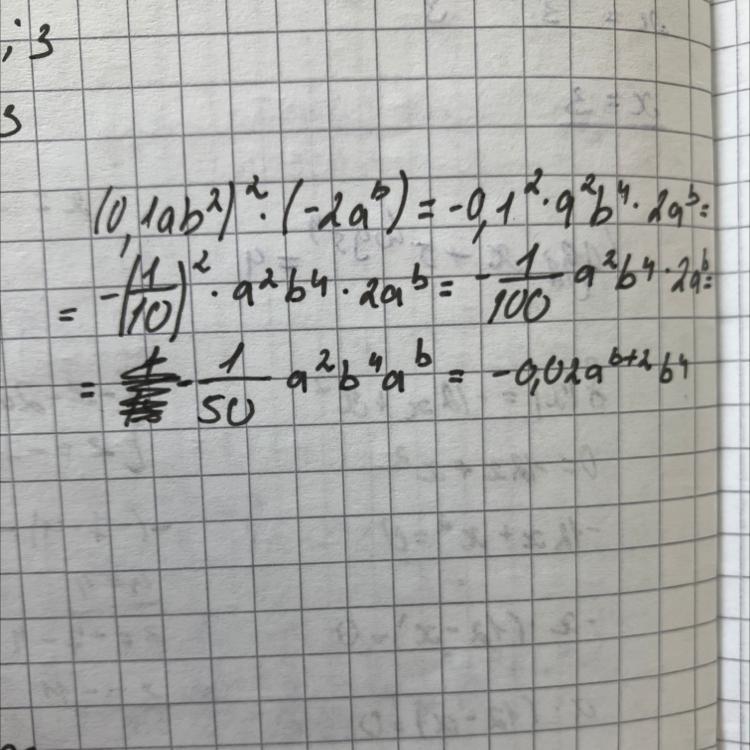 ; 3
3
x = 3
(0,1ab²)² · (-2aᵇ) = -0,1² · a²b⁴ · 2aᵇ =
= -(1/10)² · a²b⁴ · 2aᵇ = - 1/100 a²b⁴ · 2aᵇ =
= - 1/50 a²b⁴aᵇ = -0,02aᵇ⁺²b⁴